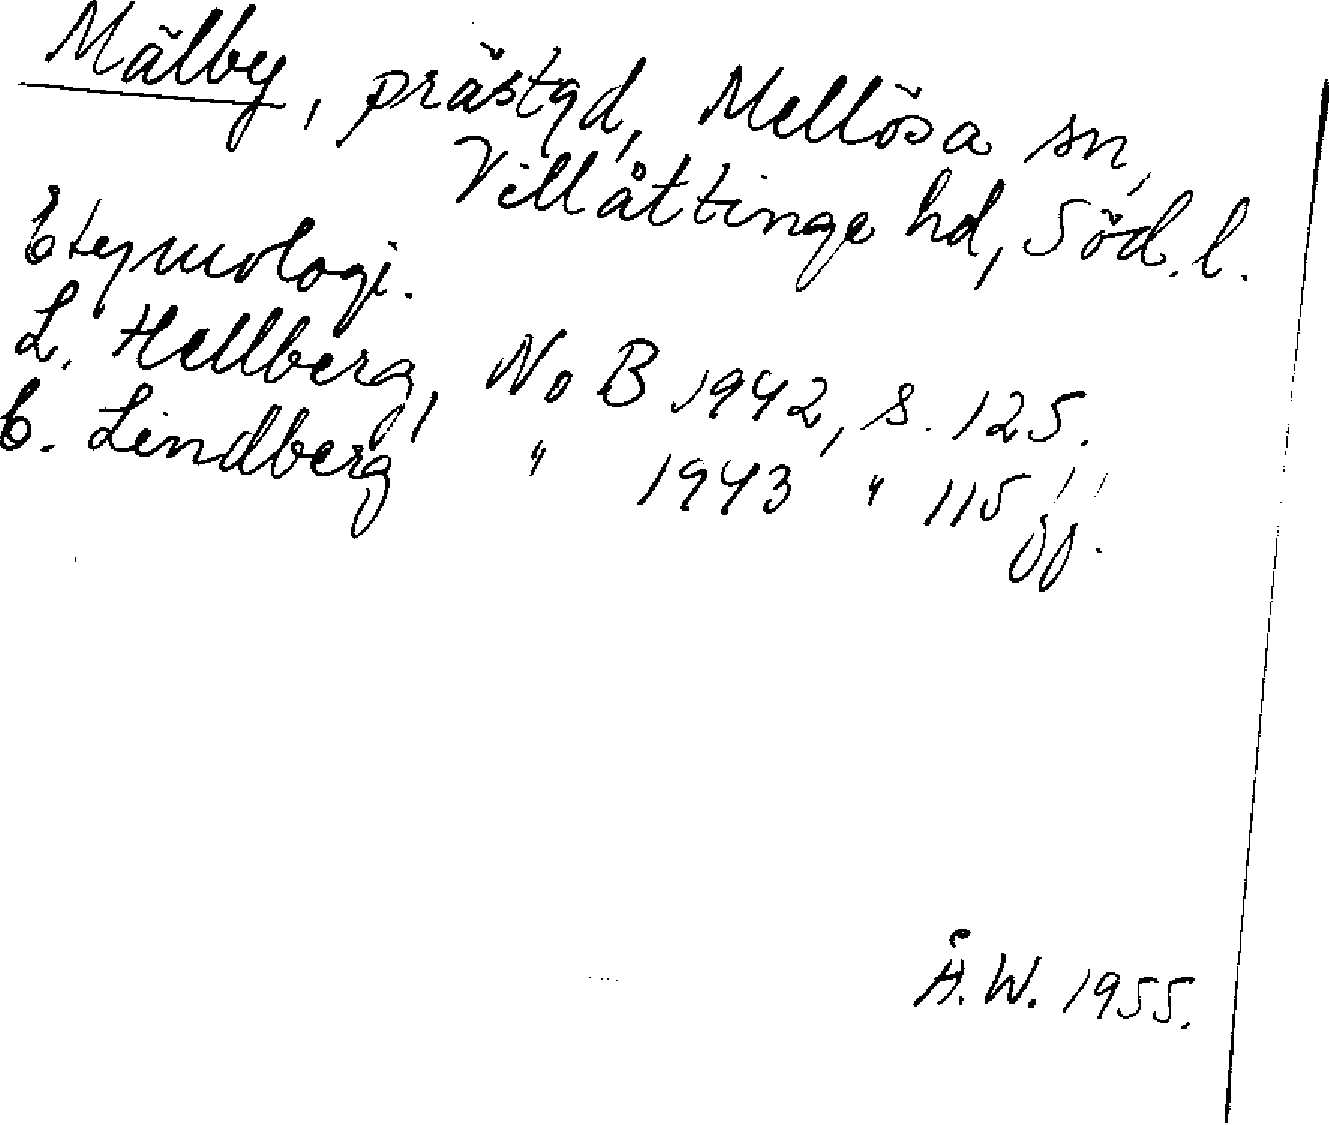 Mälby, prästgd, Mellösa sn,
Villåttinge hd, Söd. l.
Etymologi.
L. Hellberg, NoB 1942, s. 125.
C. Lindberg " 1943 " 115 ff.
Å.W. 1955.